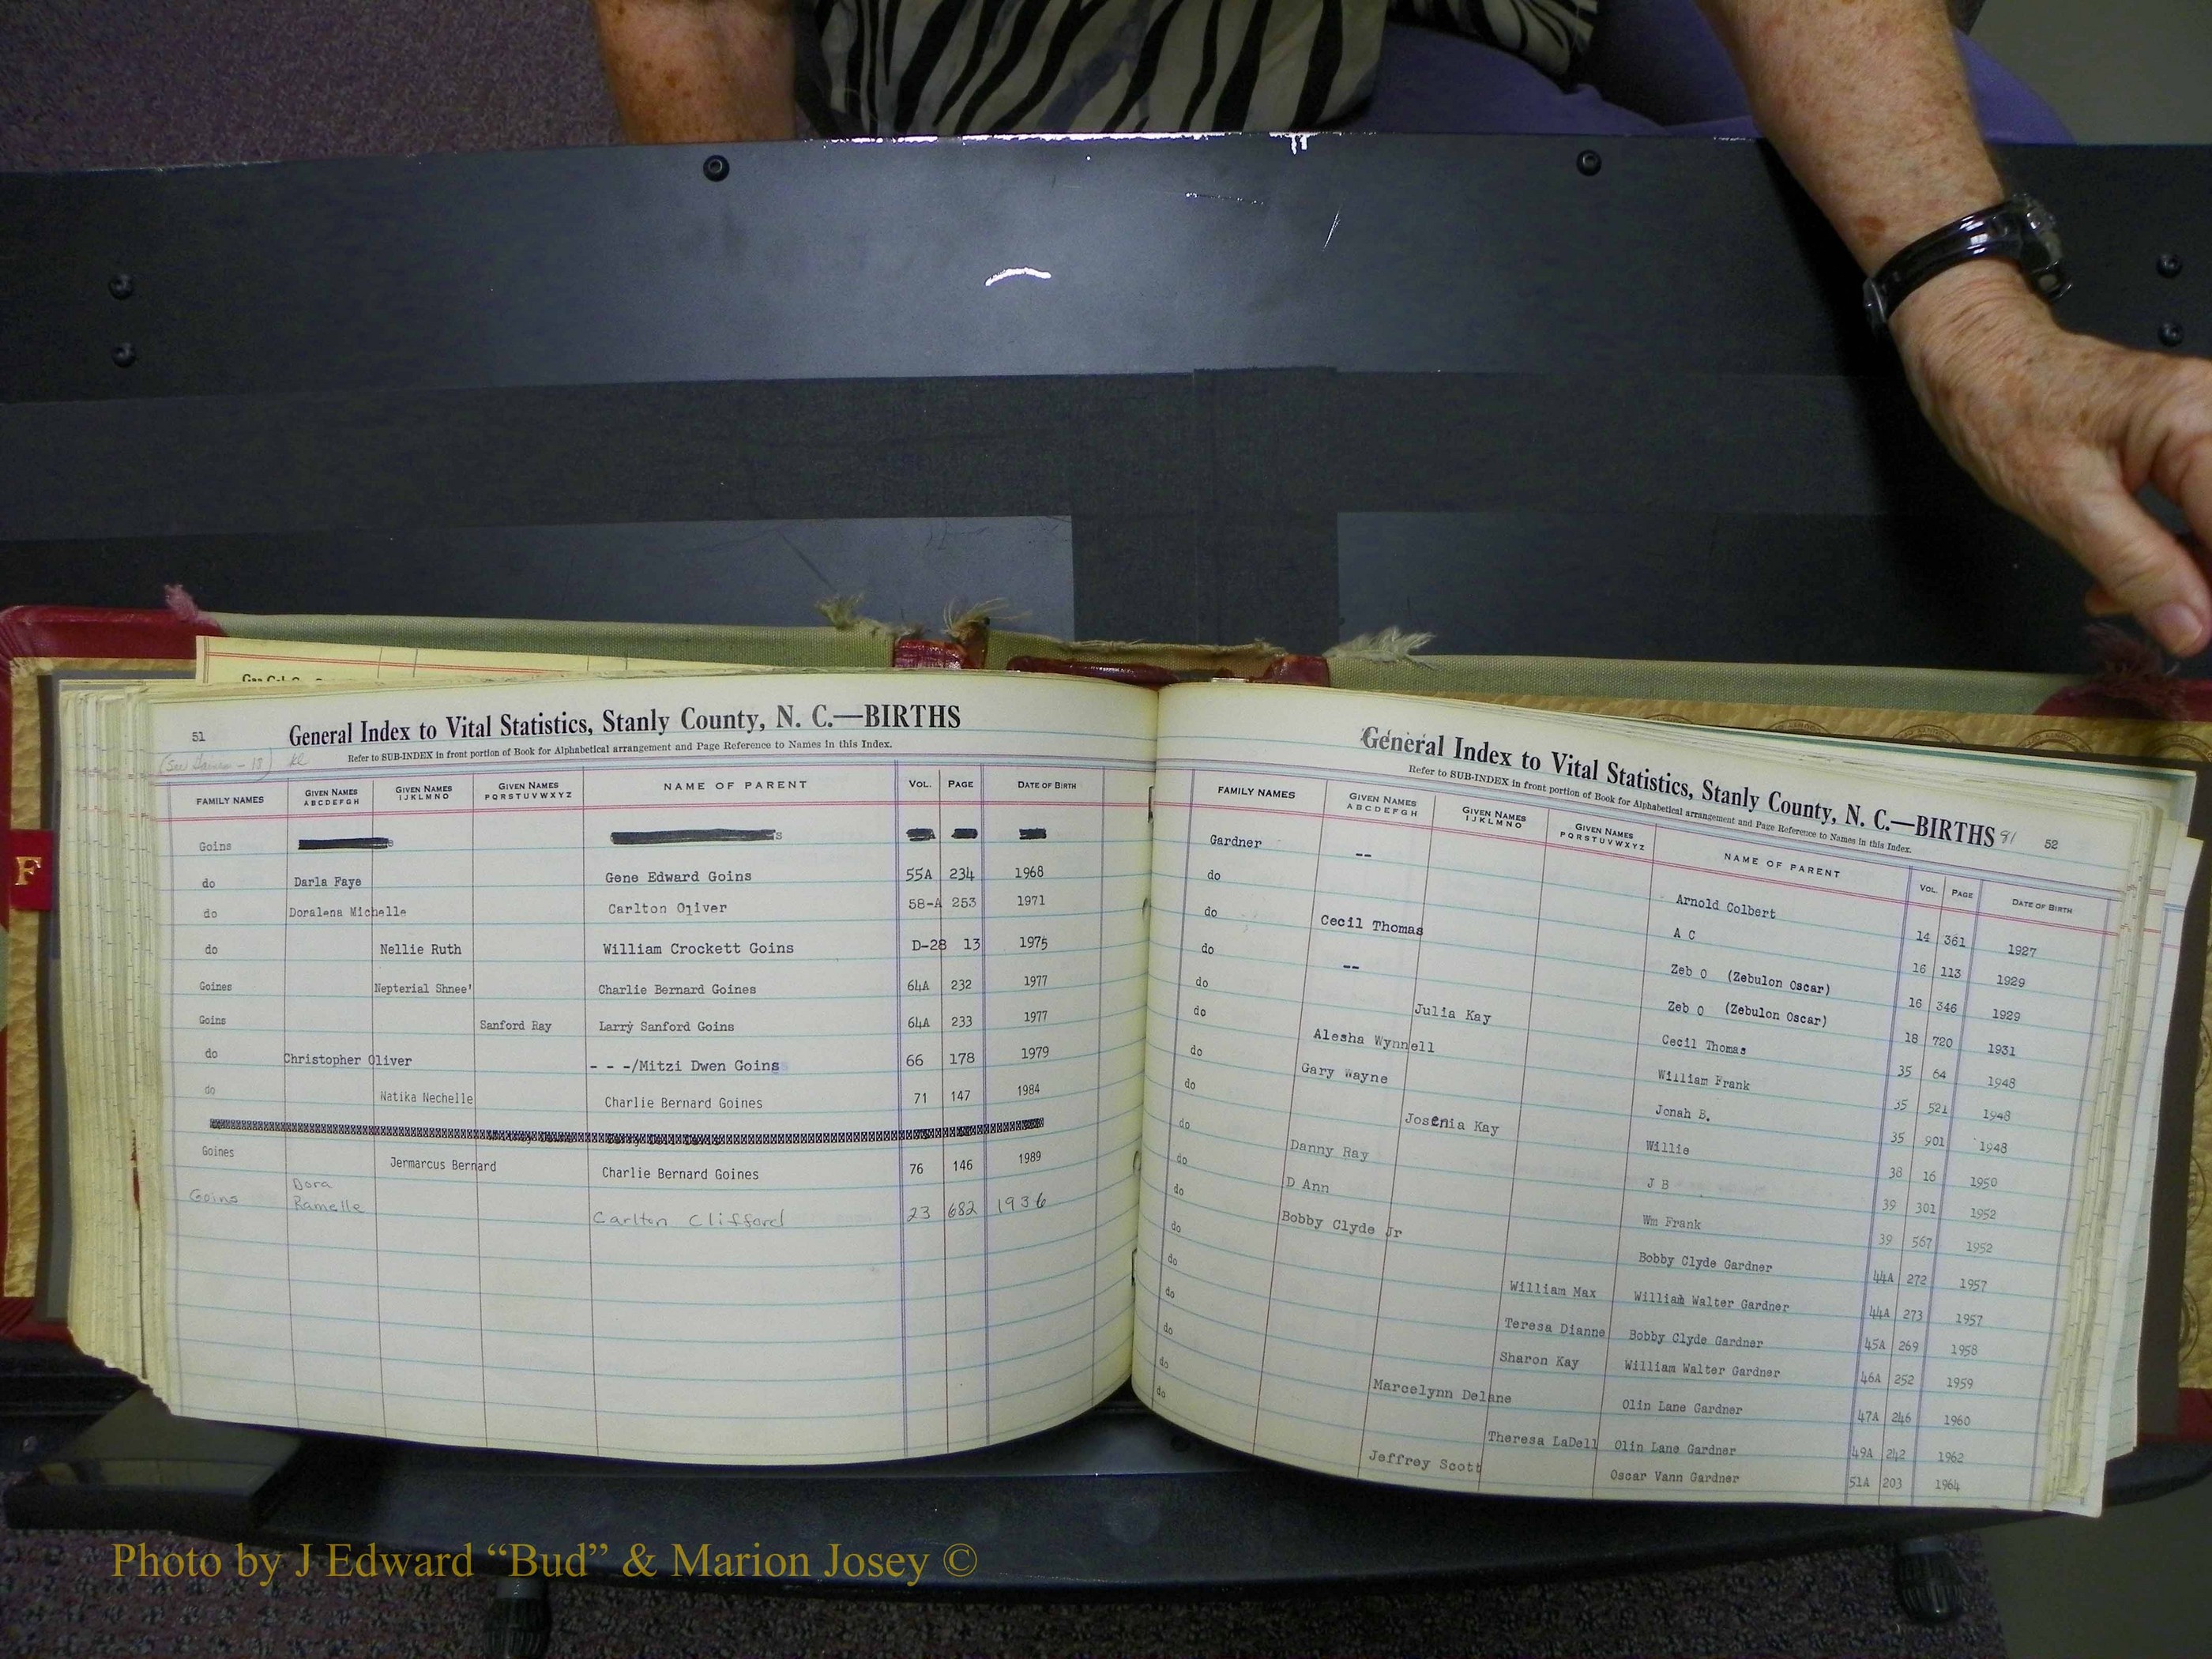 51
General Index to Vital Statistics, Stanly County, N. C.—BIRTHS
Refer to SUB-INDEX in front portion of Book for Alphabetical arrangement and Page Reference to Names in this Index.
FAMILY NAMES GIVEN NAMES ABCDEFGH GIVEN NAMES IJKLMNO GIVEN NAMES PQRSTUVWXYZ NAME OF PARENT VOL. PAGE DATE OF BIRTH
Goins
do Darla Faye Gene Edward Goins 55A 234 1968
do Doralena Michelle Carlton Oliver 58-A 253 1971
do Nellie Ruth William Crockett Goins D-28 13 1975
Goines Nepterial Shnee' Charlie Bernard Goines 64A 232 1977
Goins Sanford Ray Larry Sanford Goins 64A 233 1977
do Christopher Oliver - - -/Mitzi Dwen Goins 66 178 1979
do Natika Nechelle Charlie Bernard Goines 71 147 1984
Goines Jermarcus Bernard Charlie Bernard Goines 76 146 1989
Goins Dora Ramelle Carlton Clifford 23 682 1936
General Index to Vital Statistics, Stanly County, N. C.—BIRTHS 91 52
Refer to SUB-INDEX in front portion of Book for Alphabetical arrangement and Page Reference to Names in this Index.
FAMILY NAMES GIVEN NAMES ABCDEFGH GIVEN NAMES IJKLMNO GIVEN NAMES PQRSTUVWXYZ NAME OF PARENT VOL. PAGE DATE OF BIRTH
Gardner -- Arnold Colbert 14 361 1927
do A C 16 113 1929
do Cecil Thomas Zeb O (Zebulon Oscar) 16 346 1929
do -- Zeb O (Zebulon Oscar) 18 720 1931
do Julia Kay Cecil Thomas 35 64 1948
do Alesha Wynnell William Frank 35 521 1948
do Gary Wayne Jonah B. 35 901 1948
do Josenia Kay Willie 38 16 1950
do Danny Ray J B 39 301 1952
do D Ann Wm Frank 39 567 1952
do Bobby Clyde Jr Bobby Clyde Gardner 44A 272 1957
do William Max William Walter Gardner 44A 273 1957
do Teresa Dianne Bobby Clyde Gardner 45A 269 1958
do Sharon Kay William Walter Gardner 46A 252 1959
do Marcelynn Delane Olin Lane Gardner 47A 246 1960
do Theresa LaDell Olin Lane Gardner 49A 242 1962
do Jeffrey Scott Oscar Vann Gardner 51A 203 1964
F
Photo by J Edward “Bud” & Marion Josey ©